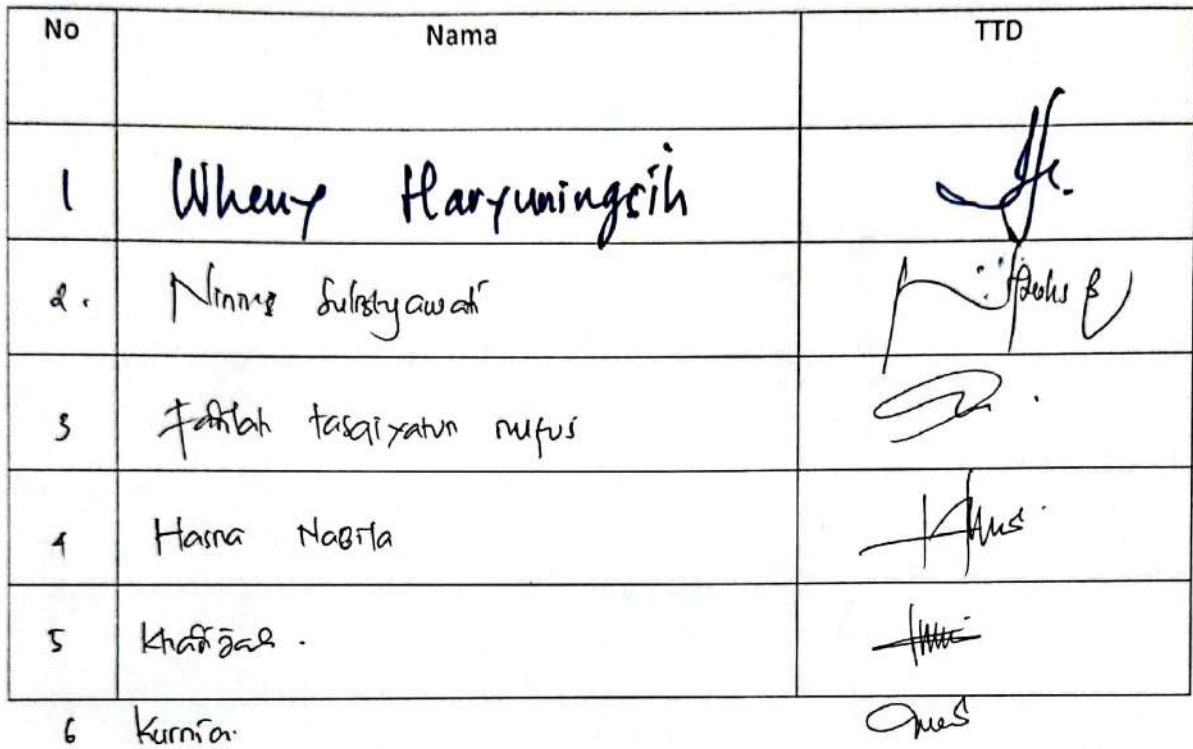 No Nama TTD
1 Wheny Haryuningsih
2. Nining Sulistyawati
3 Fadilah tasqiyatun nufus
4 Hasna Nabila
5 Khadijah.
6 Kurnia.